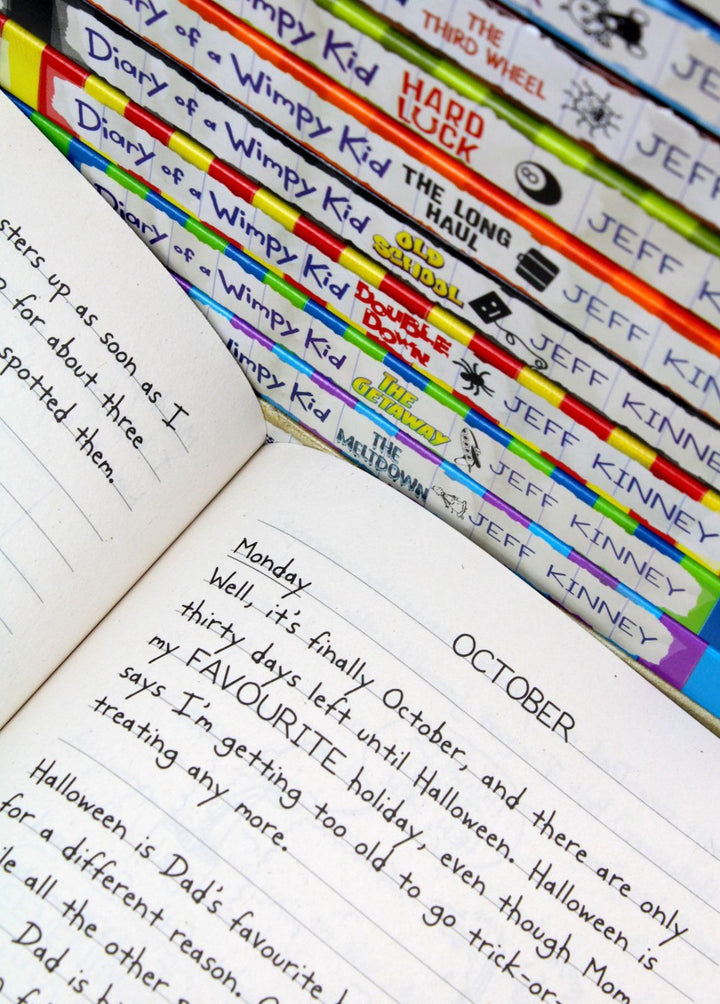 JE
THE THIRD WHEEL JEFF
Wimpy Kid HARD LUCK JEFF K
Diary of a Wimpy Kid THE LONG HAUL JEFF KIN
Diary of a Wimpy Kid OLD SCHOOL JEFF KINNE
Diary of a Wimpy Kid DOUBLE DOWN JEFF KINNEY
Diary of a Wimpy Kid THE GETAWAY JEFF KINNEY
Wimpy Kid THE MELTDOWN JEFF KINNEY
sters up as soon as I
for about three
spotted them.
OCTOBER
Monday
Well, it's finally October, and there are only
thirty days left until Halloween. Halloween is
my FAVOURITE holiday, even though Mom
says I'm getting too old to go trick-or-
treating any more.
Halloween is Dad's favourite
for a different reason.
le all the other
Dad is